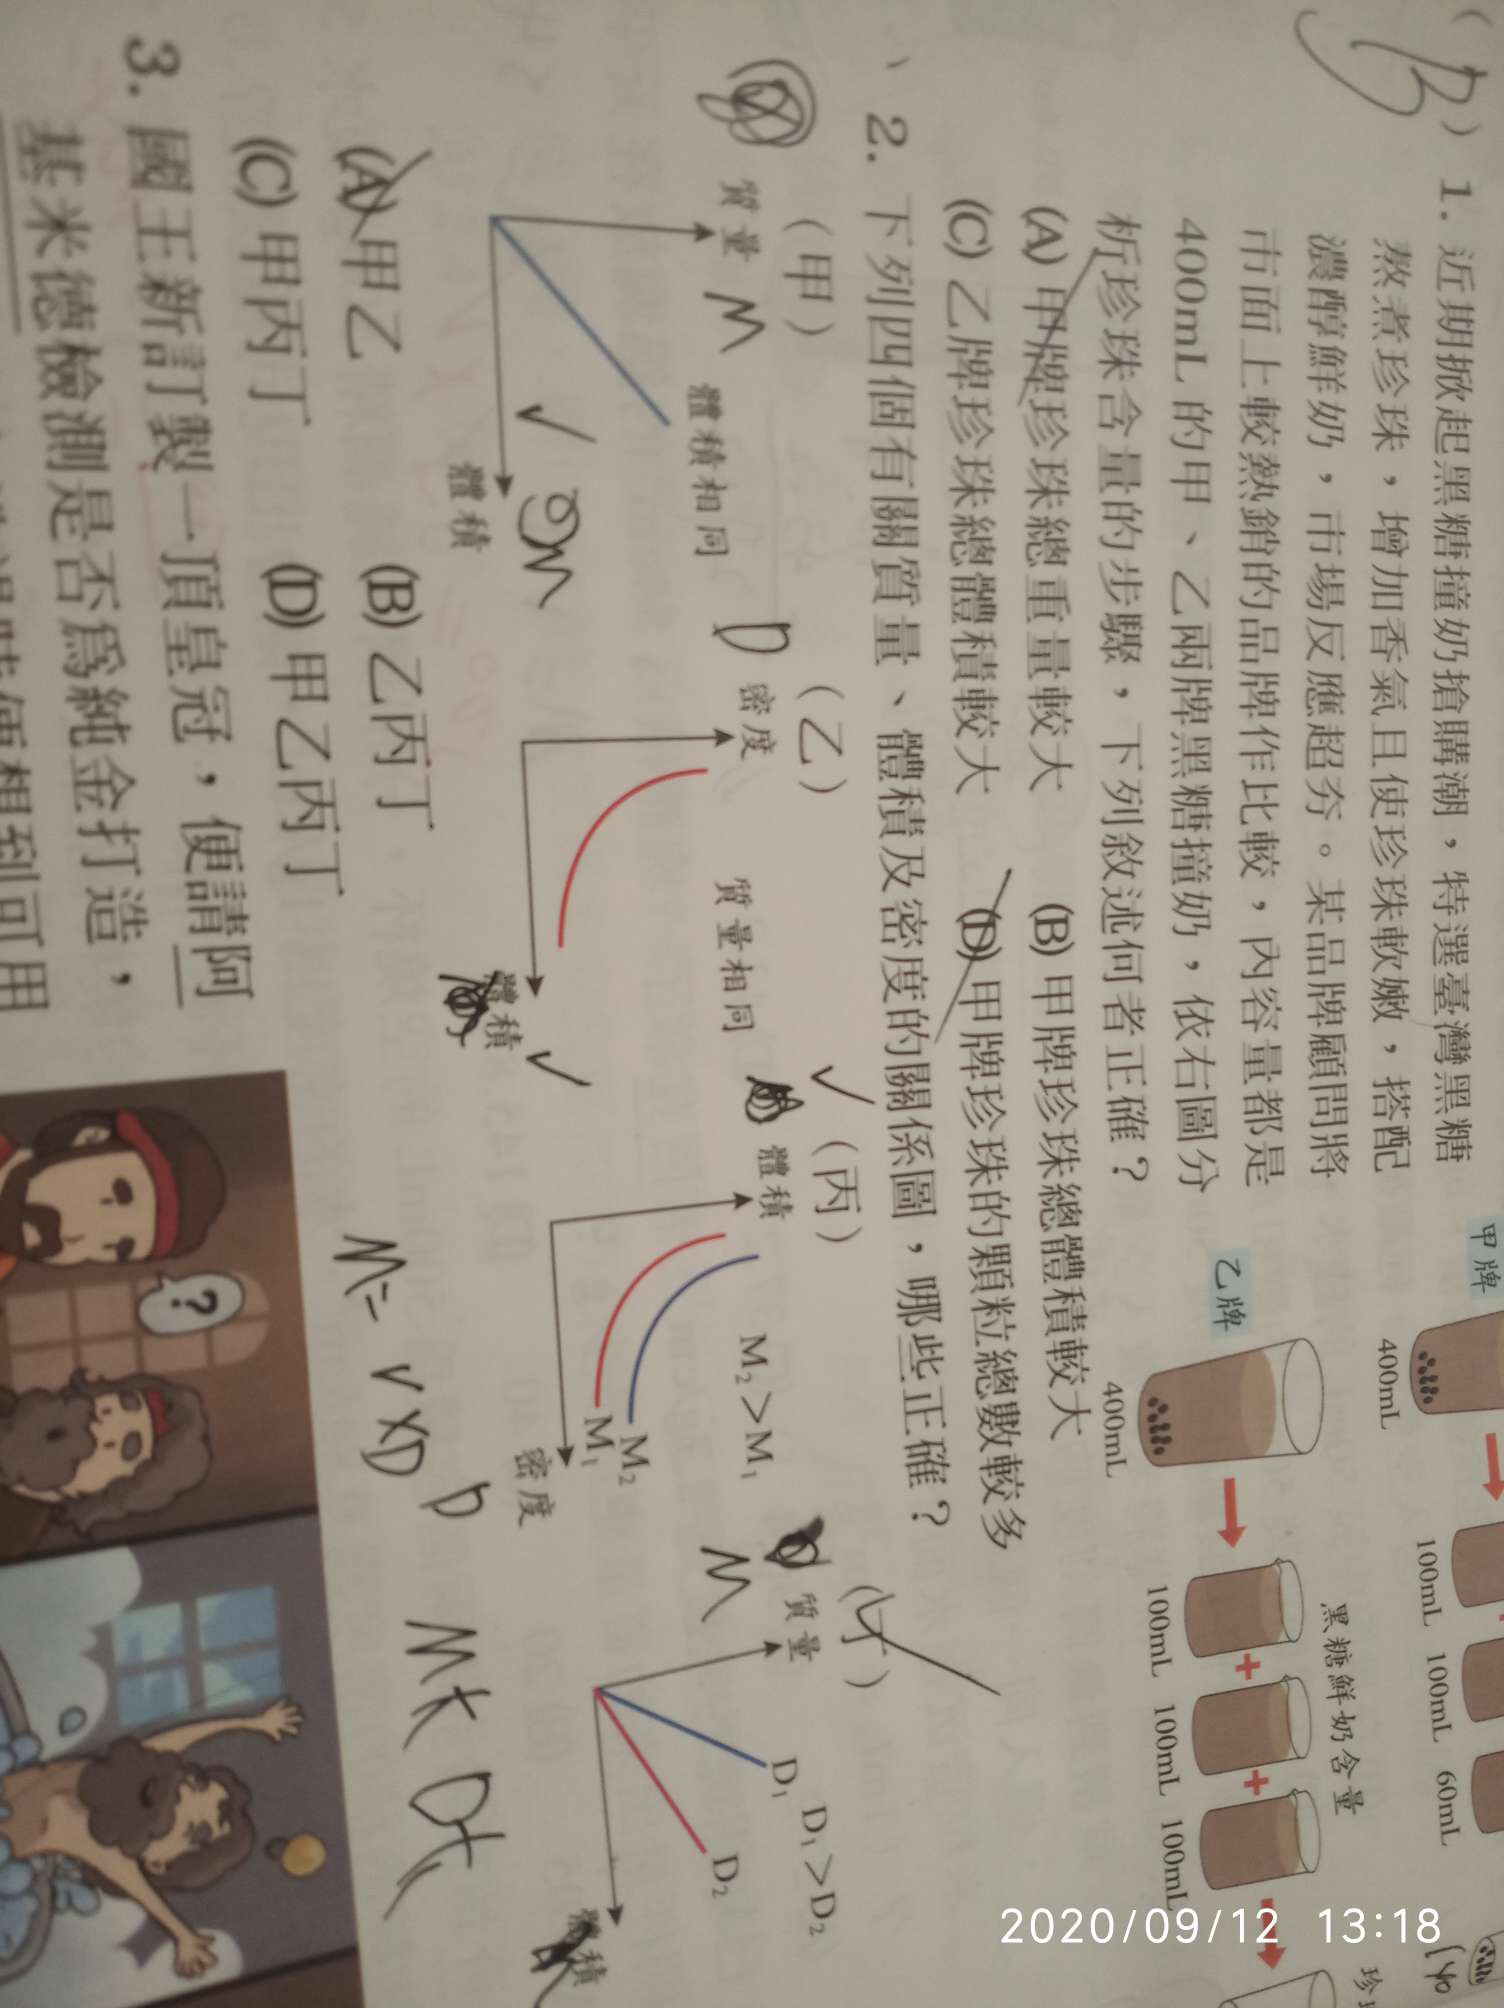 (B) 1. 近期掀起黑糖撞奶搶購潮，特選臺灣黑糖
熬煮珍珠，增加香氣且使珍珠軟嫩，搭配
濃醇鮮奶，市場反應超夯。某品牌顧問將
市面上較熱銷的品牌作比較，內容量都是
400mL 的甲、乙兩牌黑糖撞奶，依右圖分
析珍珠含量的步驟，下列敘述何者正確？
(A) 甲牌珍珠總重量較大 (B) 甲牌珍珠總體積較大
(C) 乙牌珍珠總體積較大 (D) 甲牌珍珠的顆粒總數較多
甲牌
400mL
100mL 100mL 60mL
黑糖鮮奶含量
乙牌
400mL
100mL + 100mL + 100mL
140
2. 下列四個有關質量、體積及密度的關係圖，哪些正確？
（甲）
質量 M
體積相同
體積
（乙）
D 密度
質量相同
體積
（丙）
體積
M₂＞M₁
M₂
M₁
密度
（丁）
M 質量
D₁＞D₂
D₁
D₂
體積
(A) 甲乙 (B) 乙丙丁
(C) 甲丙丁 (D) 甲乙丙丁
M= V×D
3. 國王新訂製一頂皇冠，便請阿
基米德檢測是否為純金打造，
?
2020/09/12 13:18